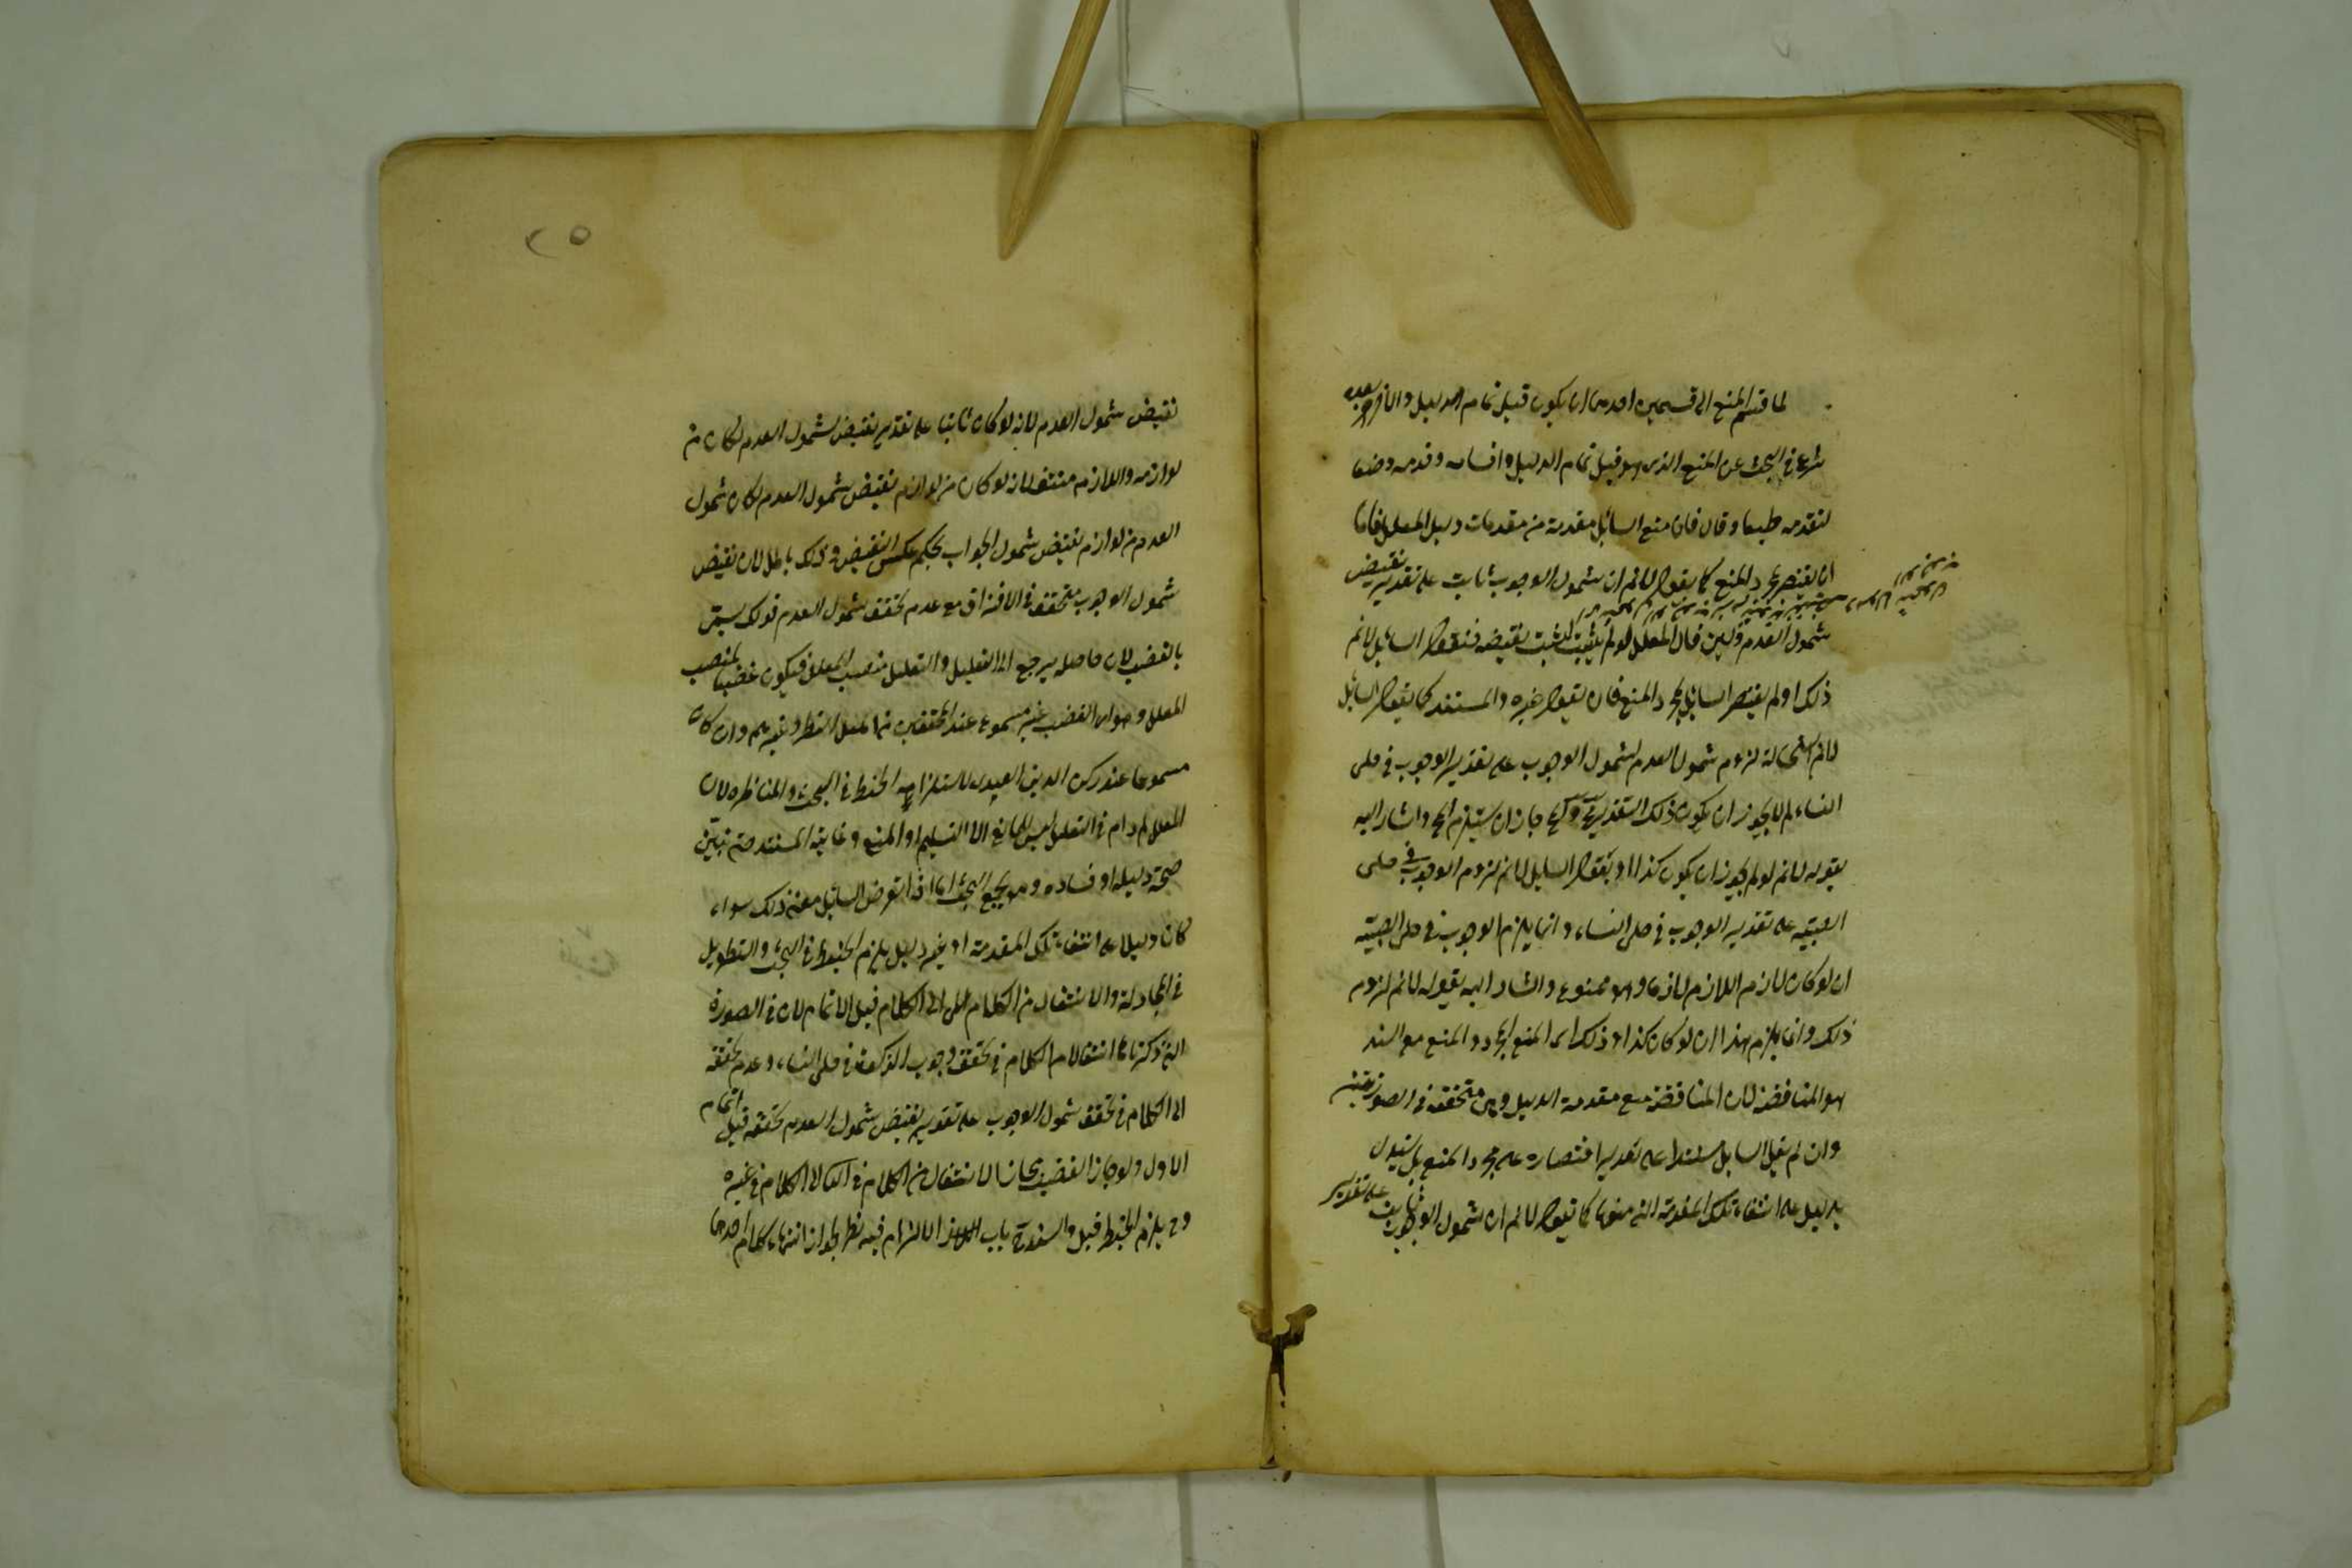 لما قسم المنع الى قسمين احدهما ان يكون قبل تمام الدليل والاخر بعده
شرع في البحث عن المنع الذي هو قبل تمام الدليل واقسامه وقدمه وضعا
لتقدمه طبعا وقال فان منع السائل مقدمة من مقدمات دليل المعلل فاما
ان يقتصر بمجرد المنع كما يقول لا نم ان شمول الوجوب ثابت على تقدير نقيض
شمول العدم ولئن قال المعلل لو لم يثبت لثبت نقيضه فنقول السائل لا نم
ذلك او لم يقتصر السائل بمجرد المنع فان يقول غيره والمستند كما يقول السائل
لا نم استحالة لزوم شمول العدم لشمول الوجوب على تقدير الوجوب في حلى
النساء لم لا يجوز ان يكون ذلك التقدير مح والمح جاز ان يستلزم المح واشار اليه
بقوله لا نم لو لم يجوز ان يكون كذا او يقول السايل لا نم لزوم الوجوب في حلى
الصبية على تقدير الوجوب في حلى النساء وانما يلزم الوجوب في حلى الصبية
ان لو كان لازم اللازم لازما وهو ممنوع واشار اليه بقوله لا نم لزوم
ذلك وانما يلزم هذا ان لو كان كذا وذلك اى المنع المجرد والمنع مع السند
هو المناقضة لان المناقضة منع مقدمة الدليل وهى متحققة في الصورتين
وان لم يقل السايل مستندا على تقدير اقتصاره على مجرد المنع بل يستدل
بدليل على انتفاء تلك المقدمة التى منعها كما يقول لا نم ان شمول الوجوب ثابت على تقدير
٢٥
نقيض شمول العدم لانه لو كان ثابتا على تقدير نقيض شمول العدم لكان من
لوازمه واللازم منتف لانه لو كان من لوازم نقيض شمول العدم لكان شمول
العدم من لوازم نقيض شمول الوجوب بحكم عكس النقيض وذلك باطل لان نقيض
شمول الوجوب متحقق في الافتراق مع عدم تحقق شمول العدم فذلك يسمى
بالغصب لان حاصله يرجع الى التعليل والتعليل منصب المعلل فيكون غصبا لمنصب
المعلل وهو اى الغصب غير مسموع عند المحققين من اهل النظر وغيرهم وان كان
مسموعا عند ركن الدين العميدى لاستلزامه الخبط في البحث والمناظرة لان
المعلل ما دام في التعليل ليس للمانع الا التسليم او المنع وغايته المستند حتى يتبين
صحة دليله او فساده وهو يجمع البحث اما اذا تعرض السائل معنى ذلك سواء
كان دليلا على انتفاء تلك المقدمة او غير دليل يلزم الخبط في البحث والتطويل
في المجادلة والانتقال من الكلام الى الكلام قبل الاتمام لان في الصورة
التى ذكرناها انتقالا من الكلام في تحقق وجوب الزكوة في حلى النساء وعدم تحققه
الى الكلام في تحقق شمول الوجوب على تقدير نقيض شمول العدم وتحققه قبل اتمام
الاول ولو جاز الغصب لجاز الانتقال من الكلام في الى الكلام في غيره
وح يلزم الخبط قيل والسند باب الالزام فيه نظر لجواز انتهاء كلام احدهما